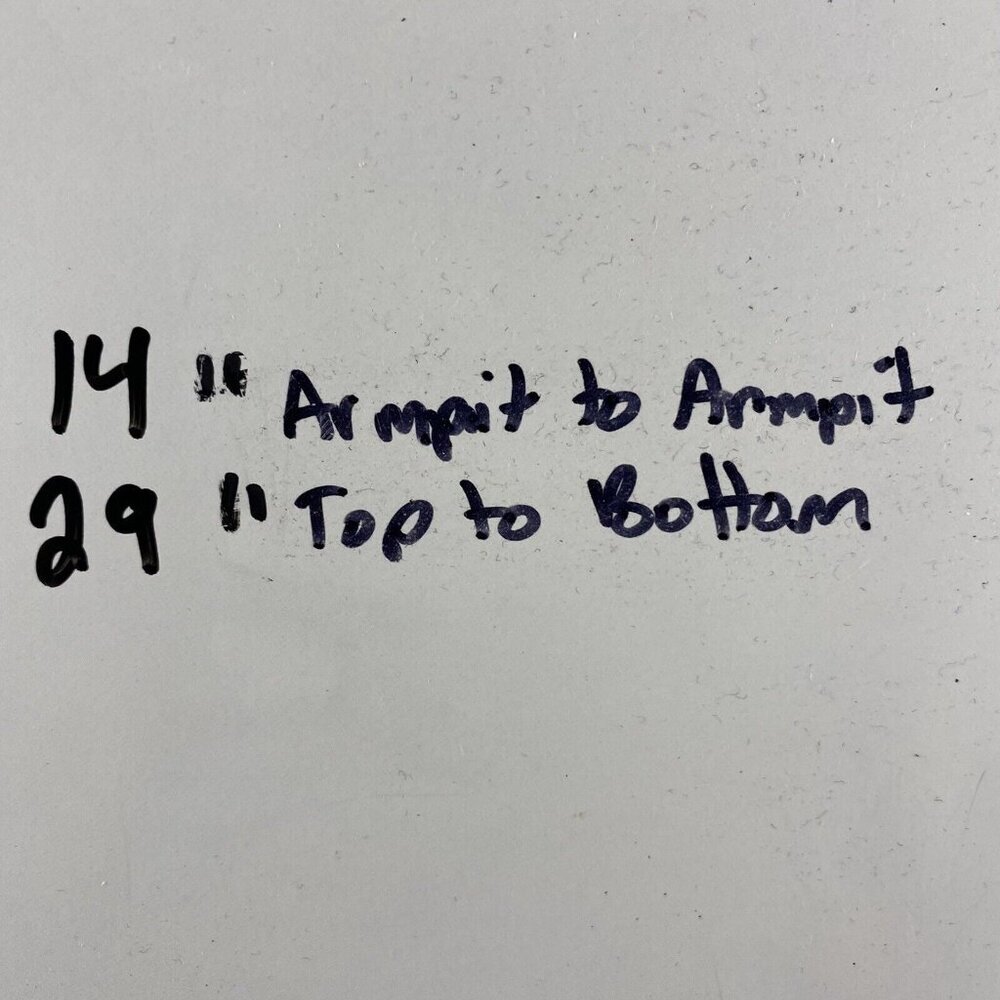 14 " Armpit to Armpit
29 " Top to Bottom